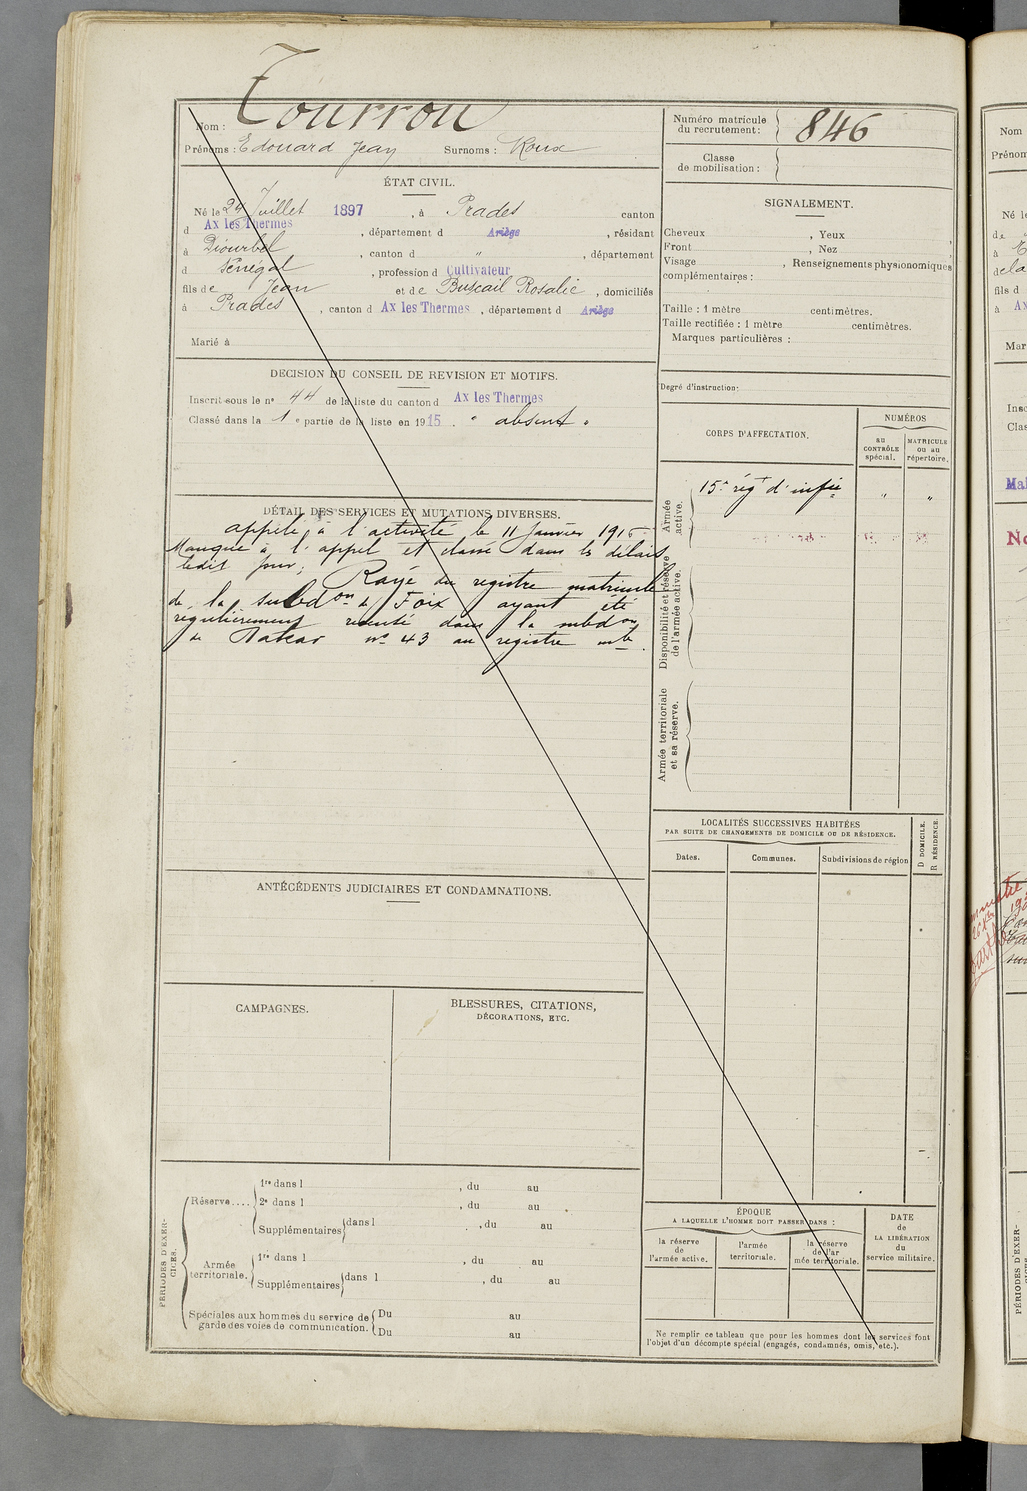 Tourrou
Nom :
Prénoms : Edouard Jean Surnoms : Roux
Numéro matricule du recrutement : 846
Classe de mobilisation :
ÉTAT CIVIL.
Né le 29 Juillet 1897, à Prades canton
d Ax les Thermes, département d Ariège, résidant
à Diourbel, canton d ", département
d Sénégal, profession d Cultivateur
fils de Jean et de Buscail Rosalie, domiciliés
à Prades, canton d Ax les Thermes, département d Ariège
Marié à
SIGNALEMENT.
Cheveux , Yeux ,
Front , Nez ,
Visage , Renseignements physionomiques
complémentaires :
Taille : 1 mètre centimètres.
Taille rectifiée : 1 mètre centimètres.
Marques particulières :
Degré d'instruction :
DECISION DU CONSEIL DE REVISION ET MOTIFS.
Inscrit sous le n° 44 de la liste du canton d Ax les Thermes
Classé dans la 1e partie de la liste en 1915. " absent "
DÉTAIL DES SERVICES ET MUTATIONS DIVERSES.
appelé à l'activité le 11 Janvier 1916
Manque à l'appel et classé dans les délais
ledit jour; Rayé du registre matricule
de la subdon de Foix ayant été
régulièrement recensé dans la subdon
de Dakar n° 43 au registre mle.
CORPS D'AFFECTATION.
NUMÉROS
au CONTRÔLE spécial.
MATRICULE ou au répertoire.
Armée active.
15e régt d'infie " "
Disponibilité et réserve de l'armée active.
Armée territoriale et sa réserve.
LOCALITÉS SUCCESSIVES HABITÉES
PAR SUITE DE CHANGEMENTS DE DOMICILE OU DE RÉSIDENCE.
Dates.
Communes.
Subdivisions de région
D DOMICILE.
R RÉSIDENCE.
ANTÉCÉDENTS JUDICIAIRES ET CONDAMNATIONS.
CAMPAGNES.
BLESSURES, CITATIONS,
DÉCORATIONS, ETC.
PÉRIODES D'EXERCICES.
Réserve....
1re dans l , du au
2e dans l , du au
Supplémentaires dans l , du au
Armée territoriale.
1re dans l , du au
Supplémentaires dans l , du au
Spéciales aux hommes du service de garde des voies de communication.
Du au
Du au
ÉPOQUE
A LAQUELLE L'HOMME DOIT PASSER DANS :
la réserve de l'armée active.
l'armée territoriale.
la réserve de l'armée territoriale.
DATE de LA LIBÉRATION du service militaire.
Ne remplir ce tableau que pour les hommes dont les services font
l'objet d'un décompte spécial (engagés, condamnés, omis, etc.).